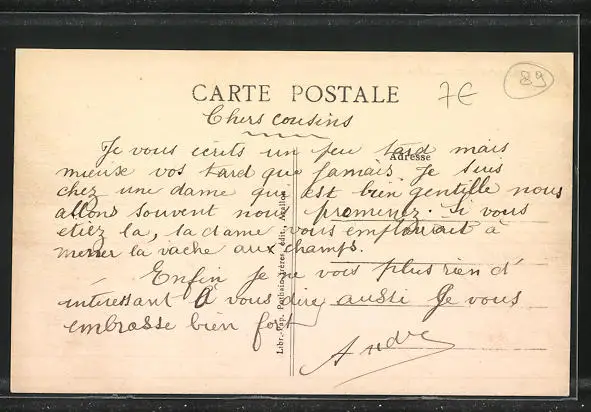 CARTE POSTALE
7€
89
Chers cousins
Adresse
Je vous écrits un peu tard mais
mieux vos tard que jamais. Je suis
chez une dame qui est bien gentille nous
allons souvent nous promenez. Si vous
etiez la, la dame vous emploirait à
mener la vache aux champs.
Enfin je ne vois plus rien d'
interessant à vous dire aussi je vous
embrasse bien fort
André
Libr.-Pap. frères, édit., Avallon